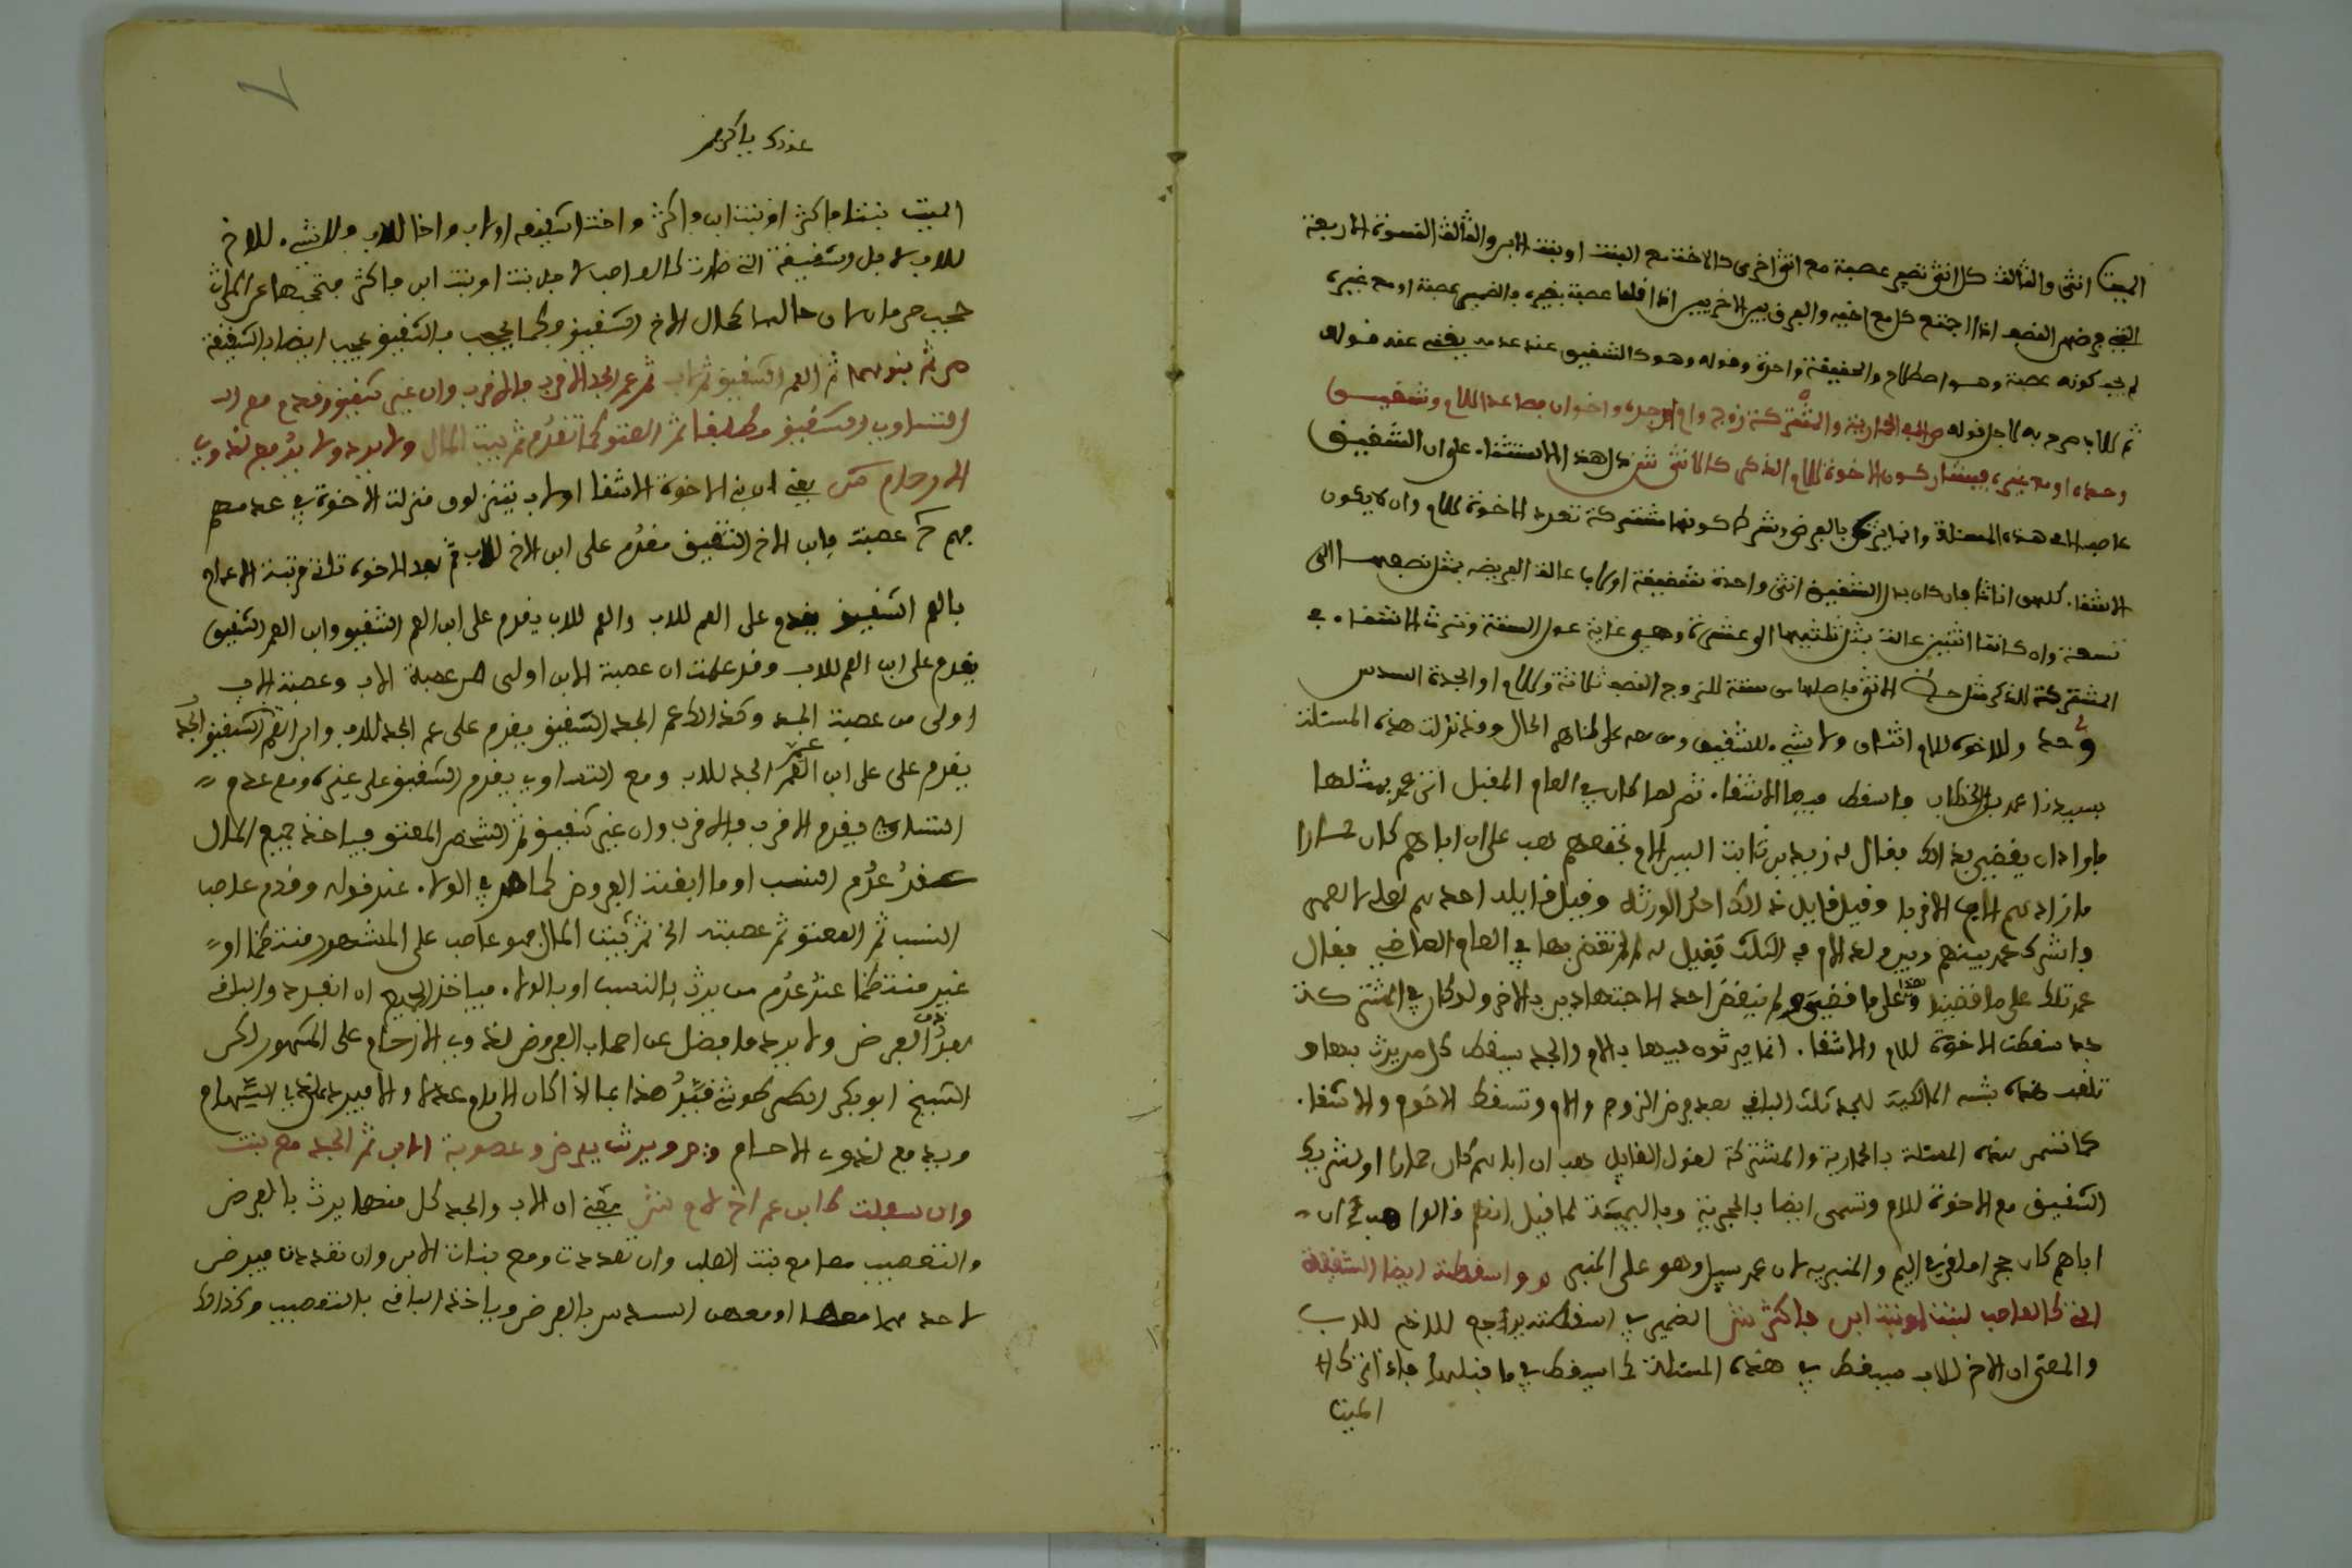 الميت انثى والثالث كل انثى تصير عصبة مع انثى اخرى كالاخت مع البنت او بنت الابن والثالث النسوة الاربعة
التي فرضهن النصف اذا اجتمع كل مع اخيه والفرق بين الاخريين اذا قلنا عصبة بغيره فالضمير عصبة او مع غيره
لم يجب كونه عصبة وهو اصطلاح والحقيقة واحدة وقوله وهو كالشقيق عند عدمه يعني عند قوله
ثم للاب صرح به لاجل قوله الا في الحمارية والمشتركة زوج وام او جدة واخوان فصاعدا للام وشقيق
وحده او مع غيره فيتشاركون الاخوة للام الذكر كالانثى ش هذا الاستثناء على ان الشقيق
عاصب الا في هذه المسئلة وانما يرث بالفرض وشرط كونها مشتركة تعدد الاخوة للام وان لا يكون
الاشقاء كلهن اناثا فان كان بدل الشقيق انثى واحدة شقيقة او لاب عالت الفريضة بمثل نصفها الى
تسعة وان كانتا اثنتين عالت بمثل ثلثيها الى عشرة وهي غاية عول الستة وترث الاشقاء في
المشتركة الذكر مثل حظ الانثى فاصلها من ستة للزوج النصف ثلاثة وللام او الجدة السدس
واحد وللاخوة للام اثنان ولا شيء للشقيق ومن معه على ظاهر الحال وقد نزلت هذه المسئلة
بسيدنا عمر بن الخطاب فاسقط فيها الاشقاء ثم لما كان في العام المقبل اتى عمر بمثلها
فاراد ان يقضي بذالك فقال له زيد بن ثابت اليس الام تجمعهم هب على ان اباهم كان حمارا
ما زادهم الاب الا قربا وقيل قايل ذالك احد الورثة وقيل قايله احدهم لعلي لا لعمر
واشرك عمر بينهم وبين ولد الام في الثلث فقيل له لم لم تقض بهذا في العام الماضي فقال
عمر تلك على ما قضينا وهذا على ما قضينا ولم ينقض احد الاجتهادين بالاخر ولو كان في المشتركة
جد سقطت الاخوة للام والاشقاء انما يرثون فيها بالام والجد يسقط كل من يرث بها و
تلقب هذه بشبه المالكية للجد ثلث الباقي بعد فرض الزوج والام وتسقط الاخوة والاشقاء
كما تسمى هذه المسئلة بالحمارية والمشتركة لقول القايل هب ان اباهم كان حمارا او لتشريك
الشقيق مع الاخوة للام وتسمى ايضا بالحجرية وباليمية لما قيل انهم قالوا هب ان
اباهم كان حجرا ملقى في اليم والمنبرية لان عمر سيل وهو على المنبر واسقطته ايضا الشقيقة
التي كالعاصب لبنت او بنت ابن فاكثر ش الضمير في اسقطته يرجع للاخ للاب
والمعنى ان الاخ للاب يسقط في هذه المسئلة كما يسقط في ما قبلها فاذا ترك
الميت

عونك يا كريم
الميت بنتا فاكثر او بنت ابن فاكثر واختا شقيقة او لاب واخا للاب ولا شيء للاخ
للاب لاجل الشقيقة التي صارت كالعاصب لاجل بنت او بنت ابن فاكثر فتحجبها عن الميراث
حجب حرمان لان حالها كحال الاخ الشقيق وكما يحجب بالشقيق يحجب ايضا بالشقيقة
ص ثم بنوهما ثم العم الشقيق ثم لاب ثم عم الجد الاقرب فالاقرب وان غير شقيق وقدم مع
التساوي الشقيق مطلقا ثم المعتق كما تقدم ثم بيت المال ولا يرد ولا يدفع لذوي
الارحام ش يعني ان بني الاخوة الاشقاء او لاب يتنزلون منزلة الاخوة في عدمهم
فهم عصبة فابن الاخ الشقيق مقدم على ابن الاخ للاب ثم بعد الاخوة تاتي مرتبة الاعمام
فالعم الشقيق يقدم على العم للاب والعم للاب يقدم على ابن العم الشقيق وابن العم الشقيق
يقدم على ابن العم للاب وقد علمت ان عصبة الابن اولى من عصبة الاب وعصبة الاب
اولى من عصبة الجد وكذالك عم الجد الشقيق يقدم على عم الجد للاب وابن العم الشقيق الجد
يقدم على على ابن العم عم الجد للاب ومع التساوي يقدم الشقيق على غيره ومع عدم
التساوي فيقدم الاقرب فالاقرب وان غير شقيق ثم الشخص المعتق فياخذ جميع المال
عند عدم النسب او ما ابقت الفروض كما مر في الولاء عند قوله وقدم عاصب
النسب ثم المعتق ثم عصبته الخ ثم بيت المال فهو عاصب على المشهور منتظما او
غير منتظم عند عدم من يرث بالنسب او بالولاء فياخذ الجميع ان انفرد والباقي
بعد ذوي الفرض ولا يرد ما فضل عن اصحاب الفروض لذوي الارحام على المشهور لكن
الشيخ ابو بكر الطرطوشي قيد هذا بما اذا كان الامام عدلا والا فيرد على ذوي السهام
ويدفع لذوي الارحام ص ويرث بفرض وعصوبة الاب ثم الجد مع بنت
وان سفلت كابن عم اخ لام ش يعني ان الاب والجد كل منهما يرث بالفرض
والتعصيب معا مع بنت الصلب وان تعددت ومع بنات الابن وان تعددت فيفرض
لاحدهما معها او معهن السدس بالفرض وياخذ الباقي بالتعصيب وكذالك